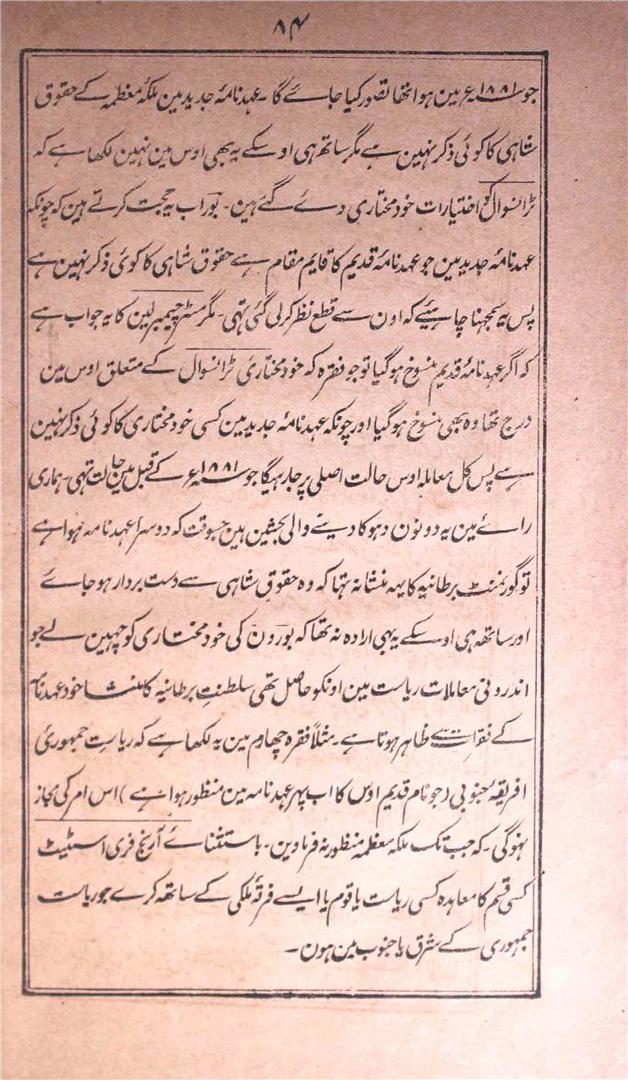 ۸۴
جو ۱۸۸۱ء مین ہوا تھا تصور کیا جائے گا۔ عہدنامۂ جدید مین ملکۂ معظمہ کے حقوق
شاہی کا کوئی ذکر نہین ہے مگر ساتھ ہی اوسکے یہ بھی اوس مین نہین لکھا ہے کہ
ٹرانسوال کو اختیارات خود مختاری دئے گئے ہین۔ بوراب یہ حجت کرتے ہین کہ چونکہ
عہدنامۂ جدید مین جو عہدنامۂ قدیم کا قایم مقام ہے حقوق شاہی کا کوئی ذکر نہین ہے
پس یہ سمجہنا چاہیئے کہ اون سے قطع نظر کرلی گئی تہی۔ مگر مسٹر چیمبرلین کا یہ جواب ہے
کہ اگر عہدنامۂ قدیم منسوخ ہوگیا تو جو فقرہ کہ خود مختاری ٹرانسوال کے متعلق اوس مین
درج تھا وہ بھی منسوخ ہوگیا اور چونکہ عہدنامۂ جدید مین کسی خود مختاری کا کوئی ذکر نہین
ہے پس کل معاملہ اوس حالت اصلی پر جا رہیگا جو ۱۸۸۱ء کے قبل مین حالت تہی۔ ہماری
رائے مین یہ دونون دہوکا دینے والی بحثین ہین جسوقت کہ دوسرا عہدنامہ ہوا ہے
تو گورنمنٹ برطانیہ کا یہہ منشا نہ تہا کہ وہ حقوق شاہی سے دست بردار ہوجائے
اور ساتھ ہی اوسکے یہبی ارادہ نہ تھا کہ بورون کی خود مختاری کو چہین لے جو
اندرونی معاملات ریاست مین اونکو حاصل تھی سلطنت برطانیہ کا منشا خود عہدنامہ
کے فقرات سے ظاہر ہوتا ہے۔ مثلاً فقرہ چہارم مین یہ لکھا ہے کہ ریاست جمہوری
افریقۂ جنوبی (جو نام قدیم اوس کا اب پہر عہدنامہ مین منظور ہوا ہے) اس امر کی مجاز
نہوگی۔ کہ جب تک ملکہ معظمہ منظور نہ فرماوین۔ باستثنائے آرنج فری اسٹیٹ
کسی قسم کا معاہدہ کسی ریاست یا قوم یا ایسے فرقۂ ملکی کے ساتھ کرے جو ریاست
جمہوری کے شرق یا جنوب مین ہون۔